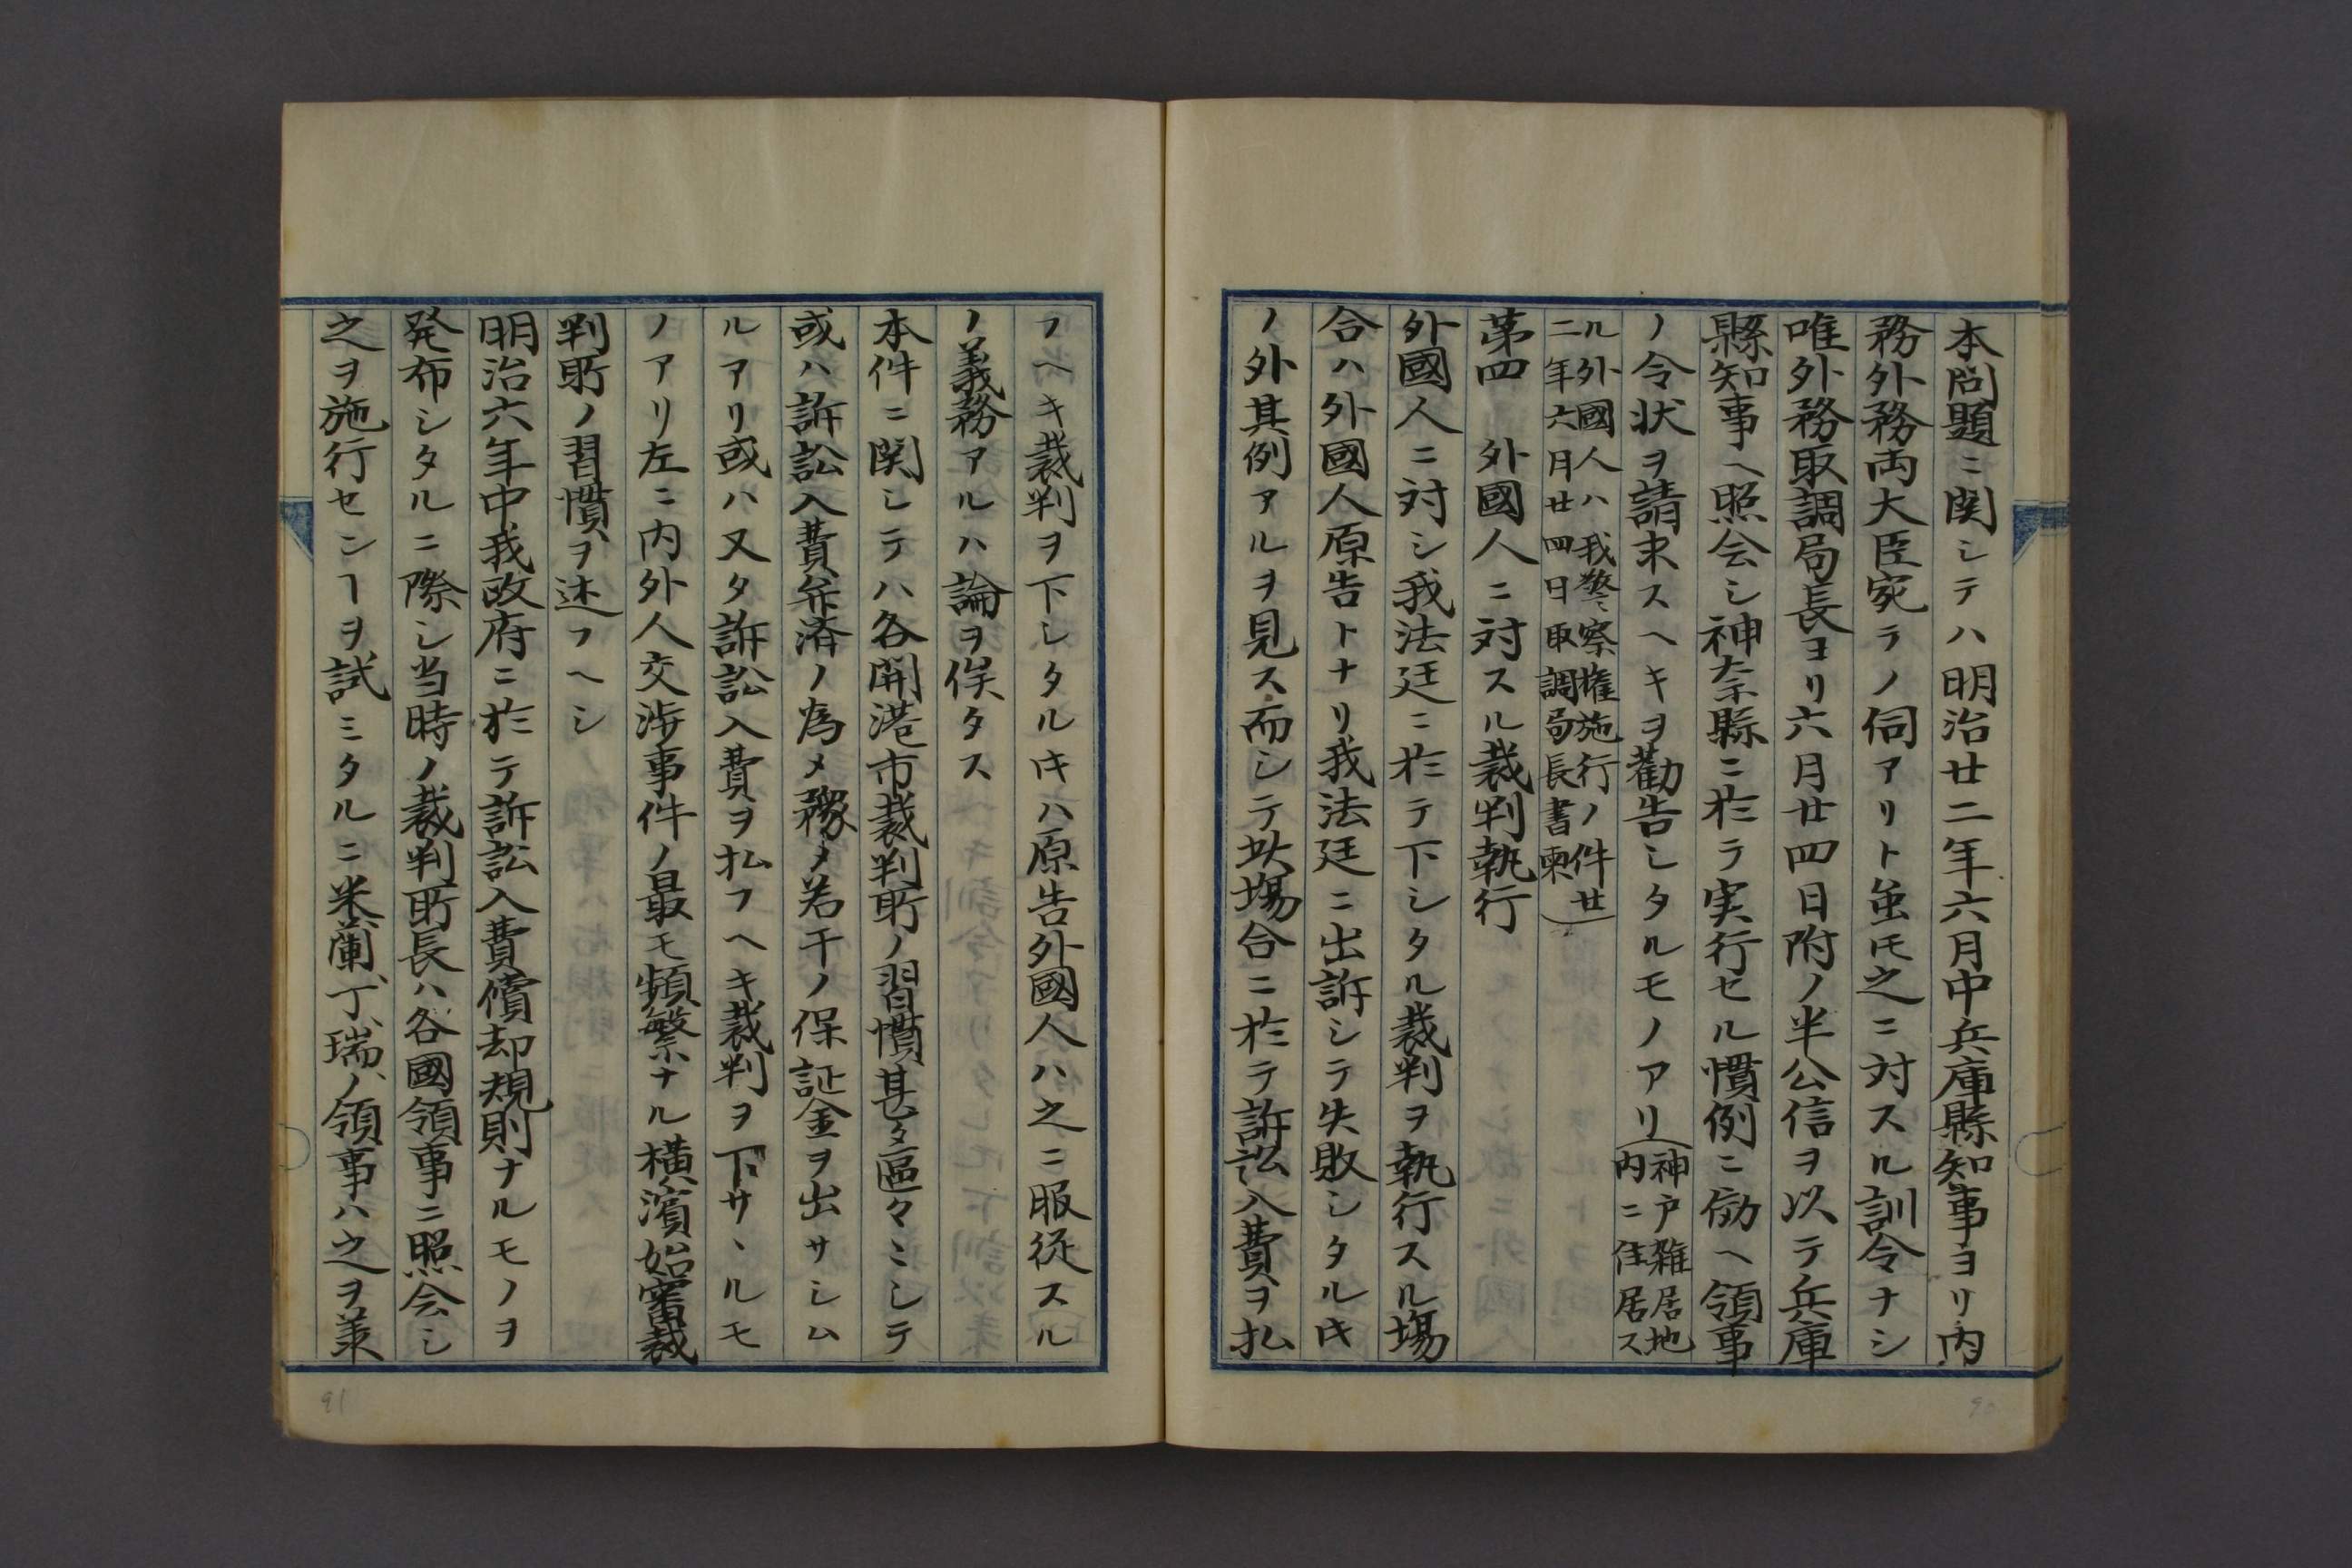 本問題ニ関シテハ明治廿二年六月中兵庫縣知事ヨリ内
務外務両大臣宛ラノ伺アリト雖𪜈之ニ対スル訓令ナシ
唯外務取調局長ヨリ六月廿四日附ノ半公信ヲ以テ兵庫
縣知事ヘ照会シ神奈縣ニ於ラ実行セル慣例ニ傚ヘ領事
ノ令状ヲ請求スヘキヲ勸告シタルモノアリ(神戸雑居地
内ニ住居ス
ル外國人ハ我警察権施行ノ件廿)
二年六月廿四日取調局長書柬
第四 外國人ニ対スル裁判執行
外國人ニ対シ我法廷ニ於テ下シタル裁判ヲ執行スル塲
合ハ外國人原告トナリ我法廷ニ出訴シテ失敗シタル𪜈
ノ外其例アルヲ見ス而シテ此塲合ニ於テ訴訟入費ヲ払
フヘキ裁判ヲ下シタル𪜈ハ原告外國人ハ之ニ服従スル
ノ義務アルハ論ヲ俟タス
本件ニ関シテハ各開港市裁判所ノ習慣甚タ區々ニシテ
或ハ訴訟入費弁済ノ為メ豫メ若干ノ保証金ヲ出サシム
ルアリ或ハ又タ訴訟入費ヲ払フヘキ裁判ヲ下サヽルモ
ノアリ左ニ内外人交渉事件ノ最モ頻繁ナル横濱始審裁
判所ノ習慣ヲ述フヘシ
明治六年中我政府ニ於テ訴訟入費償却規則ナルモノヲ
発布シタルニ際シ当時ノ裁判所長ハ各國領事ニ照会シ
之ヲ施行センヿヲ試ミタルニ米、蘭、丁、瑞、ノ領事ハ之ヲ兼
91